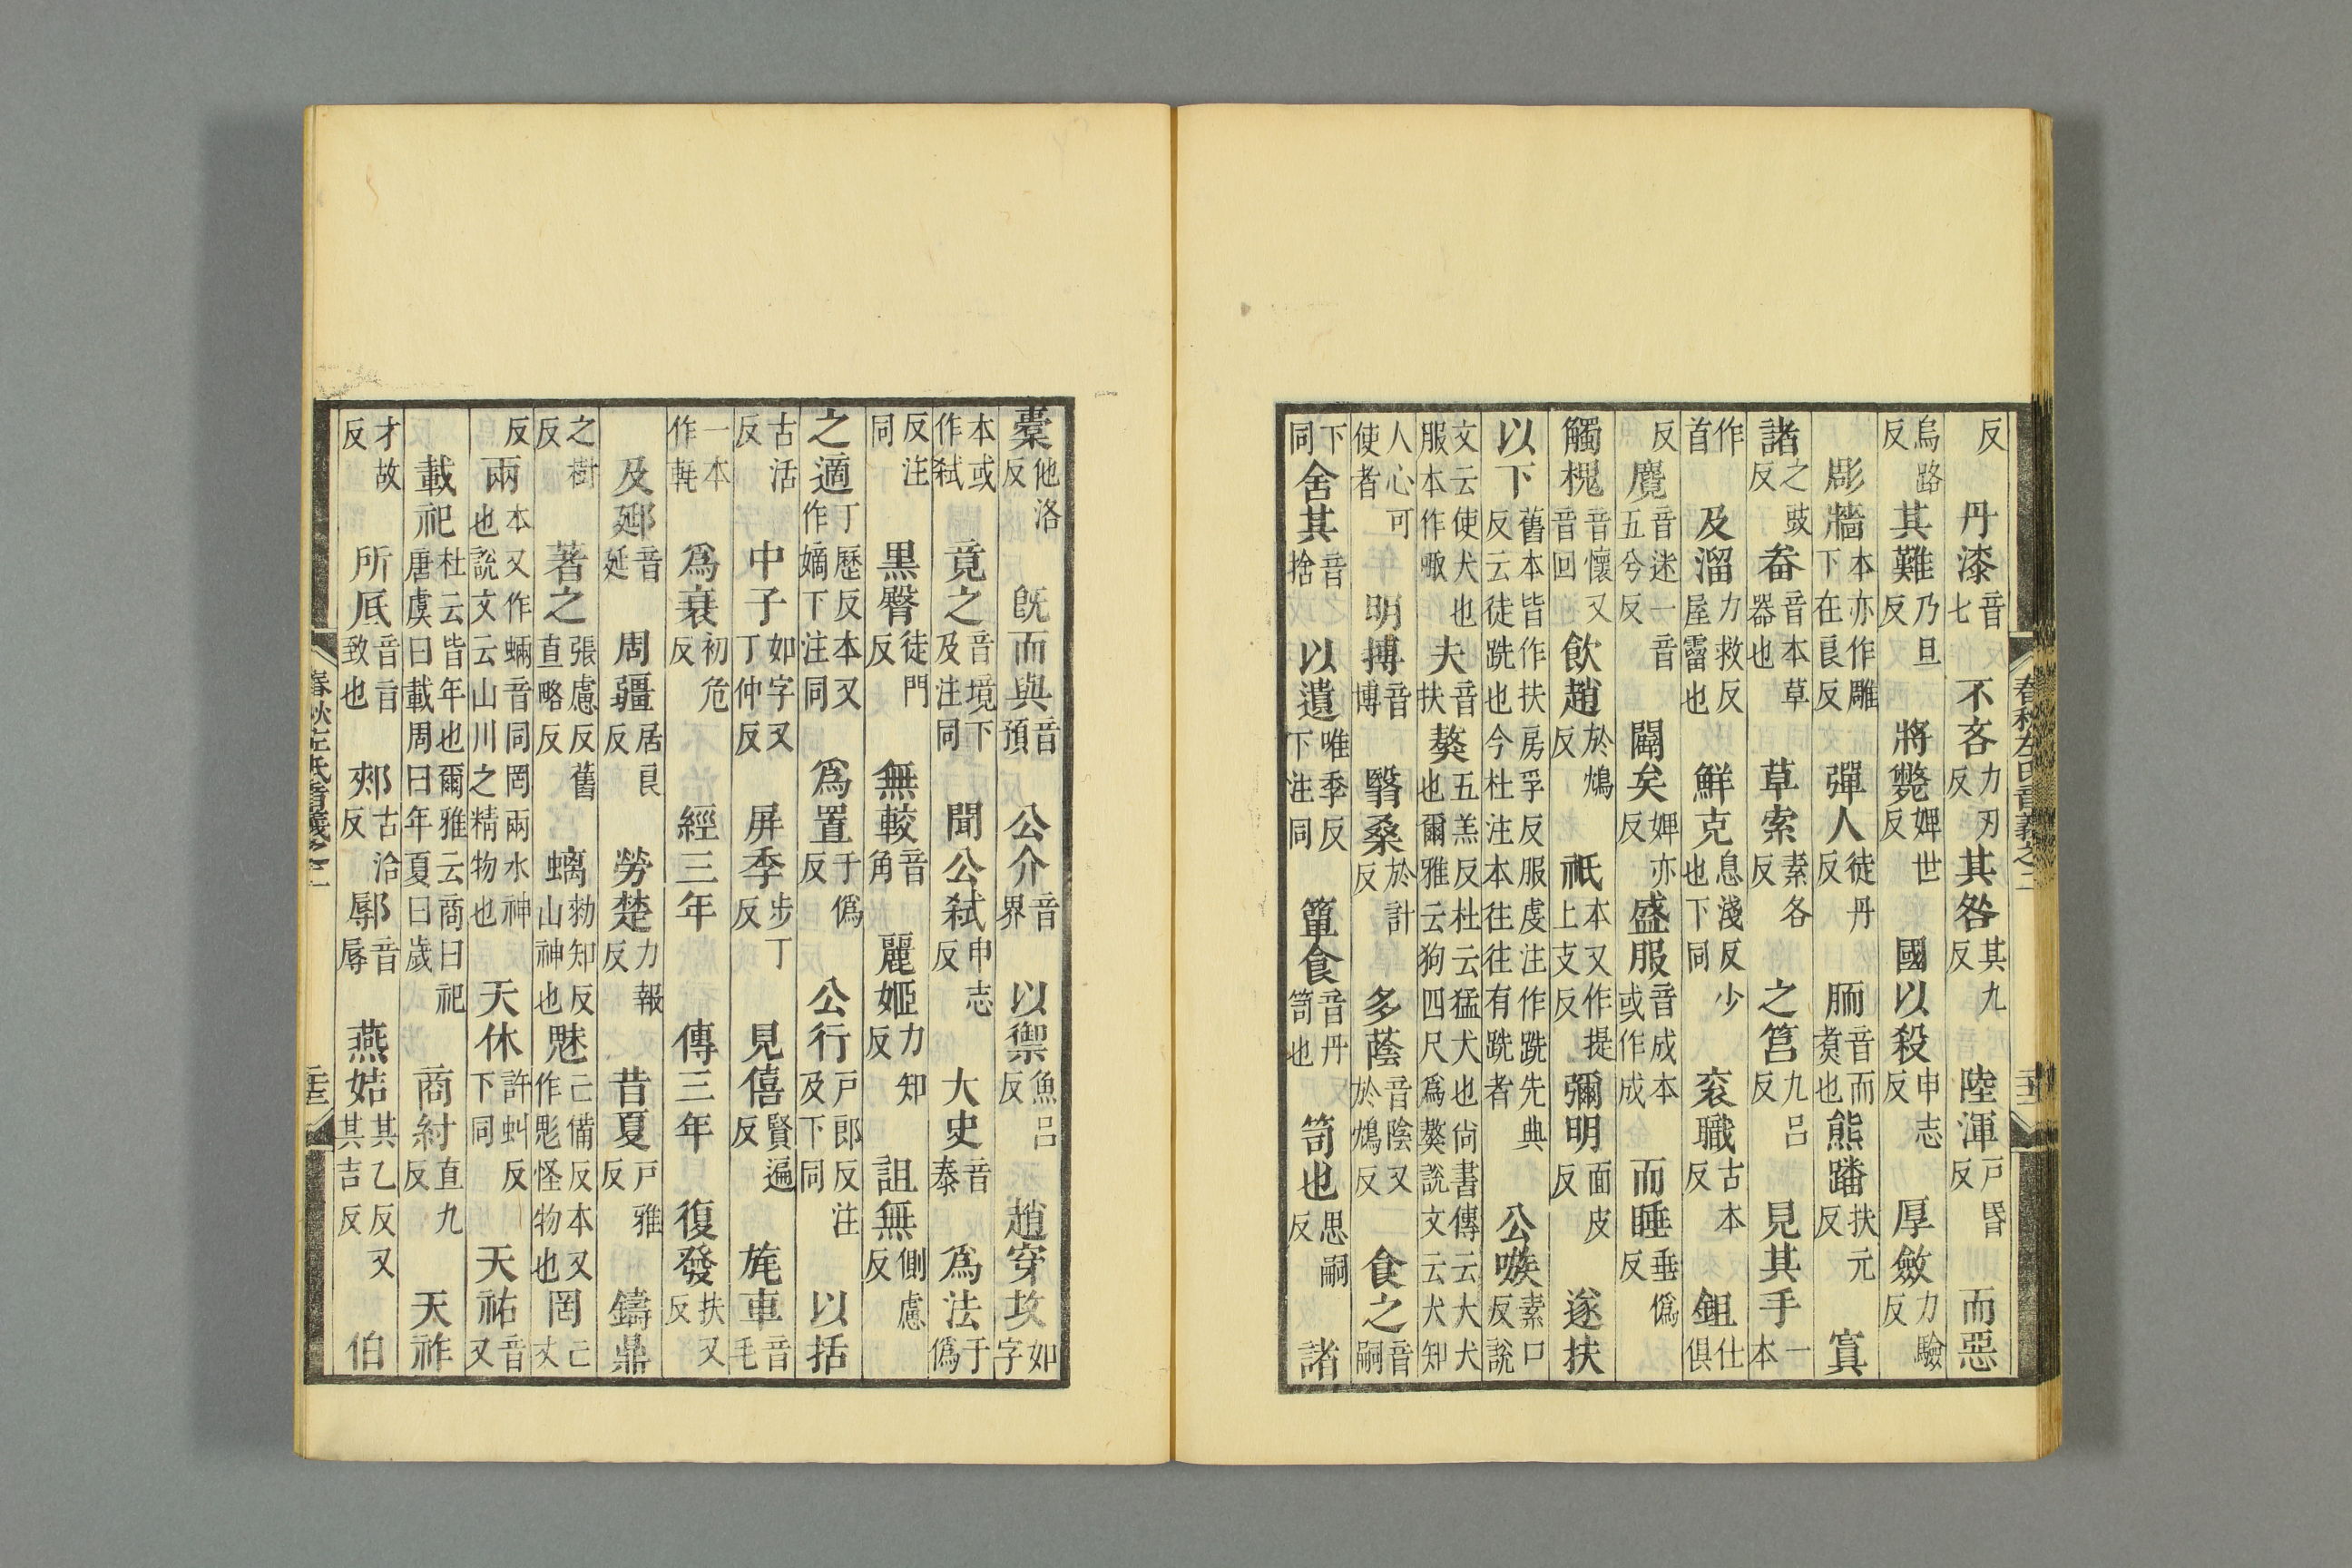 反　丹漆音七　不吝力刃反　其咎其九反　陸渾戸㬰反　而惡
烏路反　其難乃旦反　將斃婢世反　國以殺申志反　厚斂力驗反
彫牆本亦作雕下在良反　彈人徒丹反　胹音而煑也　熊蹯扶元反　寘
諸之豉反　畚音本草器也　草索素各反　之筥九呂反　見其手一本
作首　及溜力救反屋霤也　鮮克息淺反少也下同　衮職古本反　鉏仕俱
反　麑音迷一音五兮反　闢矣婢亦反　盛服音成本或作成　而睡垂僞反
觸槐音懷又音回　飲趙於鴆反　祇本又作提上支反　彌明面皮反　遂扶
以下舊本皆作扶房孚反服虔注作跣先典反云徒跣也今杜注本往往有跣者　公嗾素口反說
文云使犬也服本作㖩　夫音扶　獒五羔反杜云猛犬也尙書傳云大犬也爾雅云狗四尺爲獒說文云犬知
人心可使者　明搏音博　翳桑於計反　多蔭音陰又於鴆反　食之音嗣
下同　舍其音捨　以遺唯季反下注同　簞食音丹笥也　笥也思嗣反　諸
春秋左氏音義之二
橐他洛反　旣而與音預　公介音界　以禦魚呂反　趙穿攻如字
本或作弒　竟之音境下及注同　聞公弒申志反　大史音泰　爲法于僞
反注同　黑臀徒門反　無較音角　麗姬力知反　詛無側慮反
之適丁歷反本又作嫡下注同　爲置于僞反　公行戸郎反注及下同　以括
古活反　中子如字又丁仲反　屏季步丁反　見僖賢遍反　旄車音毛
一本作軞　爲衰初危反　經三年　傳三年　復發扶又反
及郔音延　周疆居良反　勞楚力報反　昔夏戸雅反　鑄鼎
之樹反　著之張慮反舊直略反　螭勑知反山神也　魅亡備反本又作鬽怪物也　罔亡丈
反　兩本又作蜽音同罔兩水神也說文云山川之精物也　天休許虯反下同　天祐音又
載祀杜云皆年也爾雅云商曰祀唐虞曰載周曰年夏曰歲　商紂直九反　天祚
才故反　所厎音旨致也　郟古洽反　鄏音辱　燕姞其乙反又其吉反　伯
春秋左氏音義之二